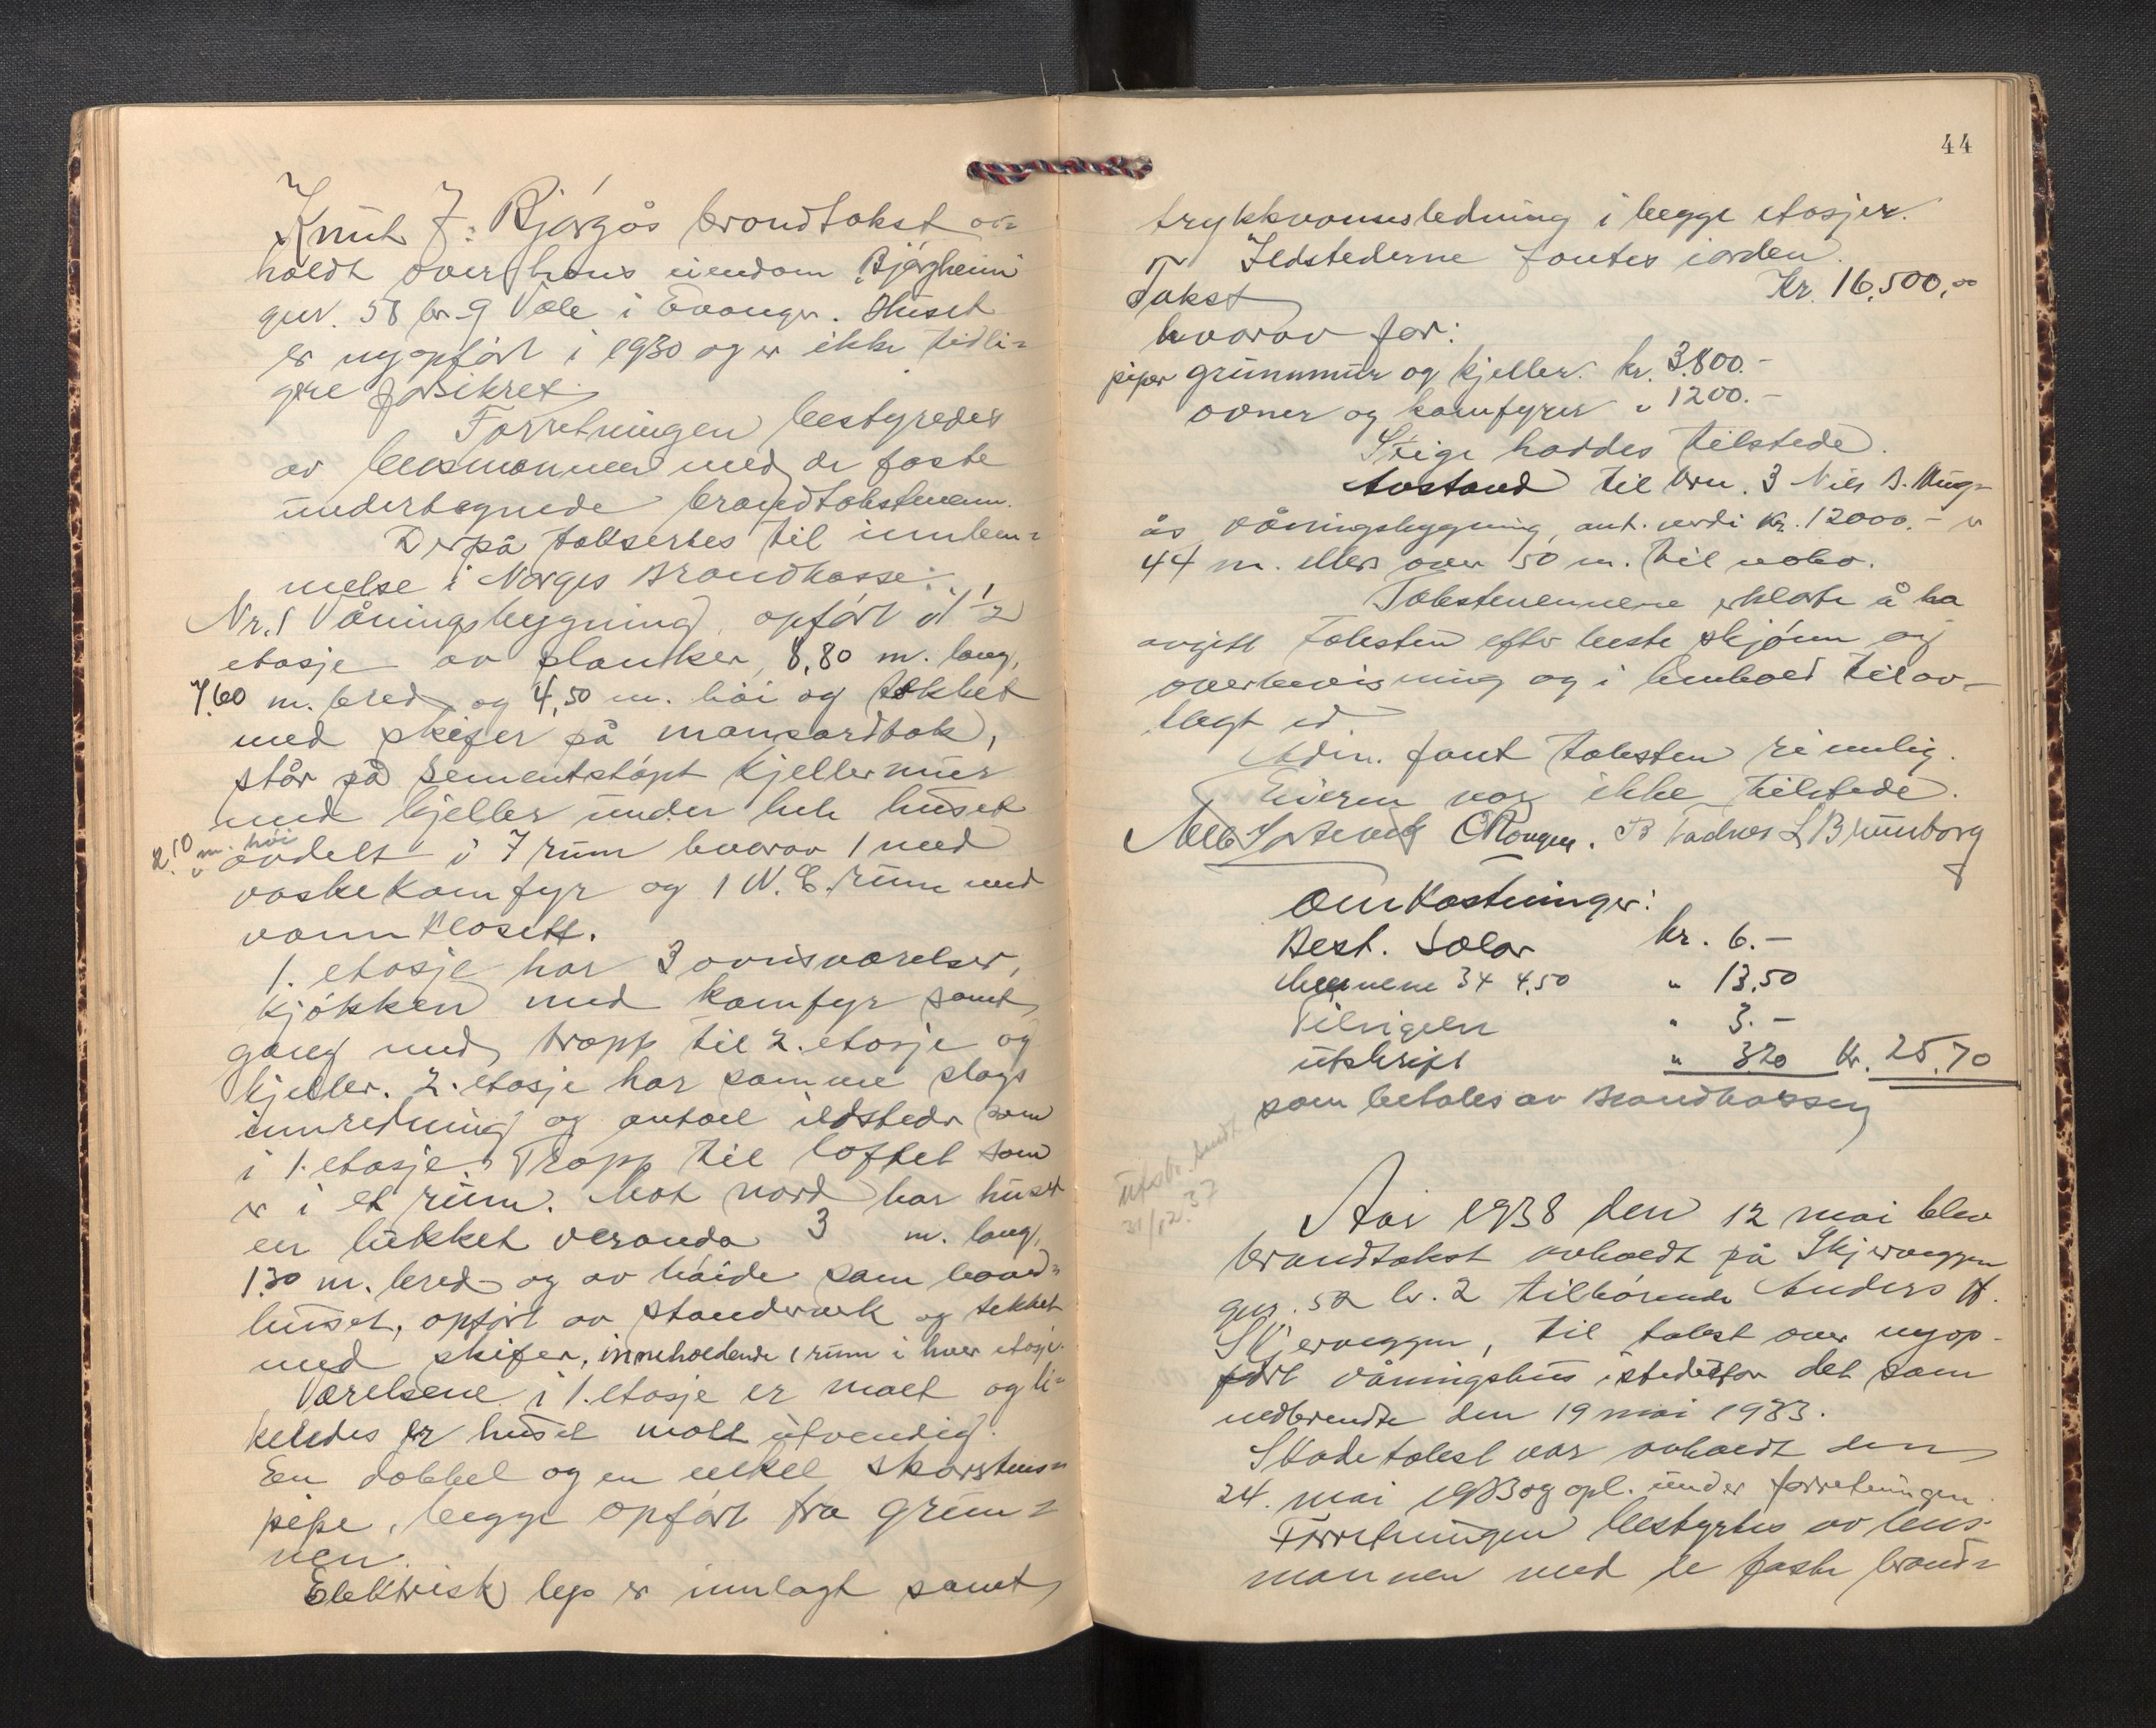 Knut J. Bjørgås brandtakst av=
holdt over hans eiendom "Bjørgheim"
gnr. 58 br. 9 Væle i Evanger. Huset
er nyopført i 1930 og er ikke tidli=
gere forsikret.
Forretningen bestyredes
av lensmannen med de faste
undertegnede brandtakstmenn.
Derpå taksertes til innlem=
melse i Norges Brandkasse:
Nr. 1 Våningsbygning, opført i 1 1/2
etasje av planker, 8,80 m. lang,
7,60 m. bred og 4,50 m. høi og tekket
med skifer på mansardtak,
står på sementstøpt kjellermur
med kjeller under hele huset
2,10 m. høi
avdelt i 7 rum hvorav 1 med
vaskekomfyr og 1 W.C. rum med
vannklosett.
1. etasje har 3 ovnsværelser,
kjøkken med komfyr samt
gang med trapp til 2. etasje og
kjeller. 2. etasje har samme slags
innredning og antall ildsteder som
i 1. etasje. Trapp til loftet som
er i et rum. Mot nord har huset
en lukket veranda 3 m. lang,
1,30 m. bred og av høide som hoved=
huset, opført av standverk og tekket
med skifer, inneholdende 1 rum i hver etasje.
Værelsene i 1. etasje er malt og li=
keledes er huset malt utvendig.
En dobbel og en enkel skorstens=
pipe, begge opført fra grun=
nen.
Elektrisk lys er innlagt samt
44
trykkvannsledning i begge etasjer.
Ildstederne fantes iorden.
Takst Kr. 16,500,00
hvorav for:
piper grunnmur og kjeller kr. 3.800.-
ovner og komfyrer " 1200.-
Stige haddes tilstede.
Avstand til brn. 3 Nils B. Bug=
ås våningsbygning, ant. verdi kr. 12000.- er
44 m. ellers over 50 m. til nabo.
Takstmennene erklærte å ha
avgitt taksten efter beste skjønn og
overbevisning og i henhold til av=
lagt ed
Adm. fant taksten rimlig.
Eieren var ikke tilstede.
O Rongen. B Tadnes L Brunborg
Omkostninger:
Best. Salær kr. 6.-
Mennene 3 x 4,50 " 13,50
Tilsigelse " 3.-
utskrift " 3 20 kr. 25,70
som betales av Brandkassen
Utskr. sendt
31/12.37
Aar 1938 den 12 mai blev
brandtakst avholdt på Skjerveggen
gnr. 52 br. 2 tilhørende Anders H.
Skjerveggen, til takst over nyop-
ført våningshus istedetfor det som
nedbrendte den 19 mai 1933.
Skadetakst var avholdt den
24. mai 1933 og opl. under forretningen.
Forretningen bestyrtes av lens-
mannen med de faste brand=